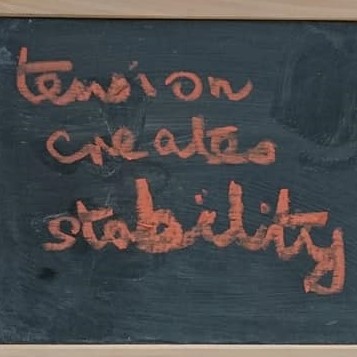 tension
creates
stability